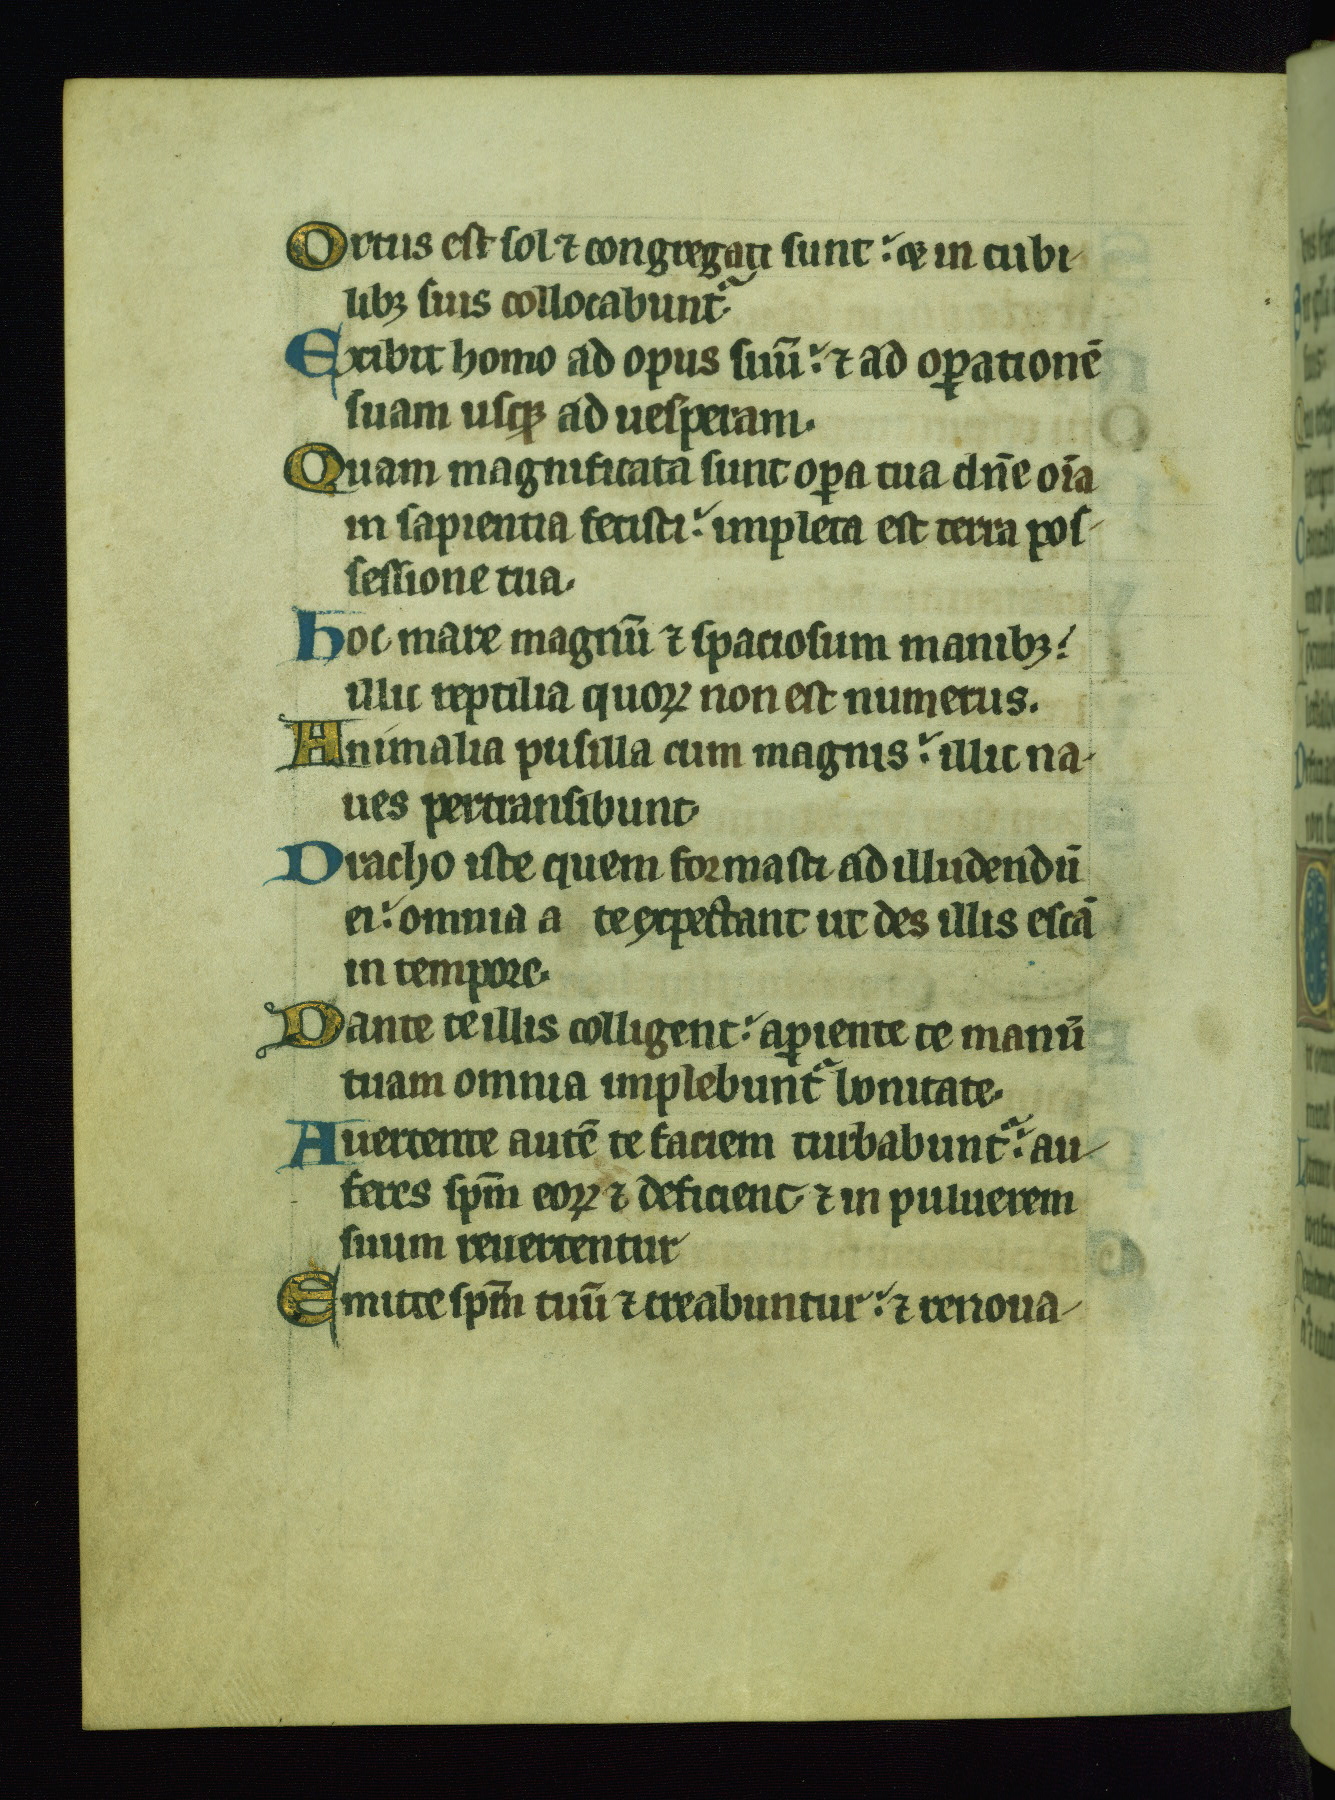 Ortus est sol ⁊ congregati sunt: ⁊ in cubi
libꝫ suis collocabunt᷑
Exibit homo ad opus suū: ⁊ ad oꝑationē
suam usqꝫ ad uesperam.
Quam magnificata sunt oꝑa tua dn̄e oīa
in sapientia fecisti: impleta est terra pos
sessione tua.
hoc mare magnū ⁊ spaciosum manibꝫ:
illic reptilia quoꝝ non est numerus.
Animalia pusilla cum magnis: illic na
ues pertransibunt.
Dracho iste quem formasti ad illudendū
ei: omnia a te expectant ut des illis escā
in tempore.
Dante te illis colligent: aꝑiente te manū
tuam omnia implebunt᷑ bonitate.
Auertente autē te faciem turbabunt᷑: au
feres sp̄m eoꝝ ⁊ deficient ⁊ in puluerem
suum reuertentur
Emitte sp̄m tuū ⁊ creabuntur: ⁊ renoua